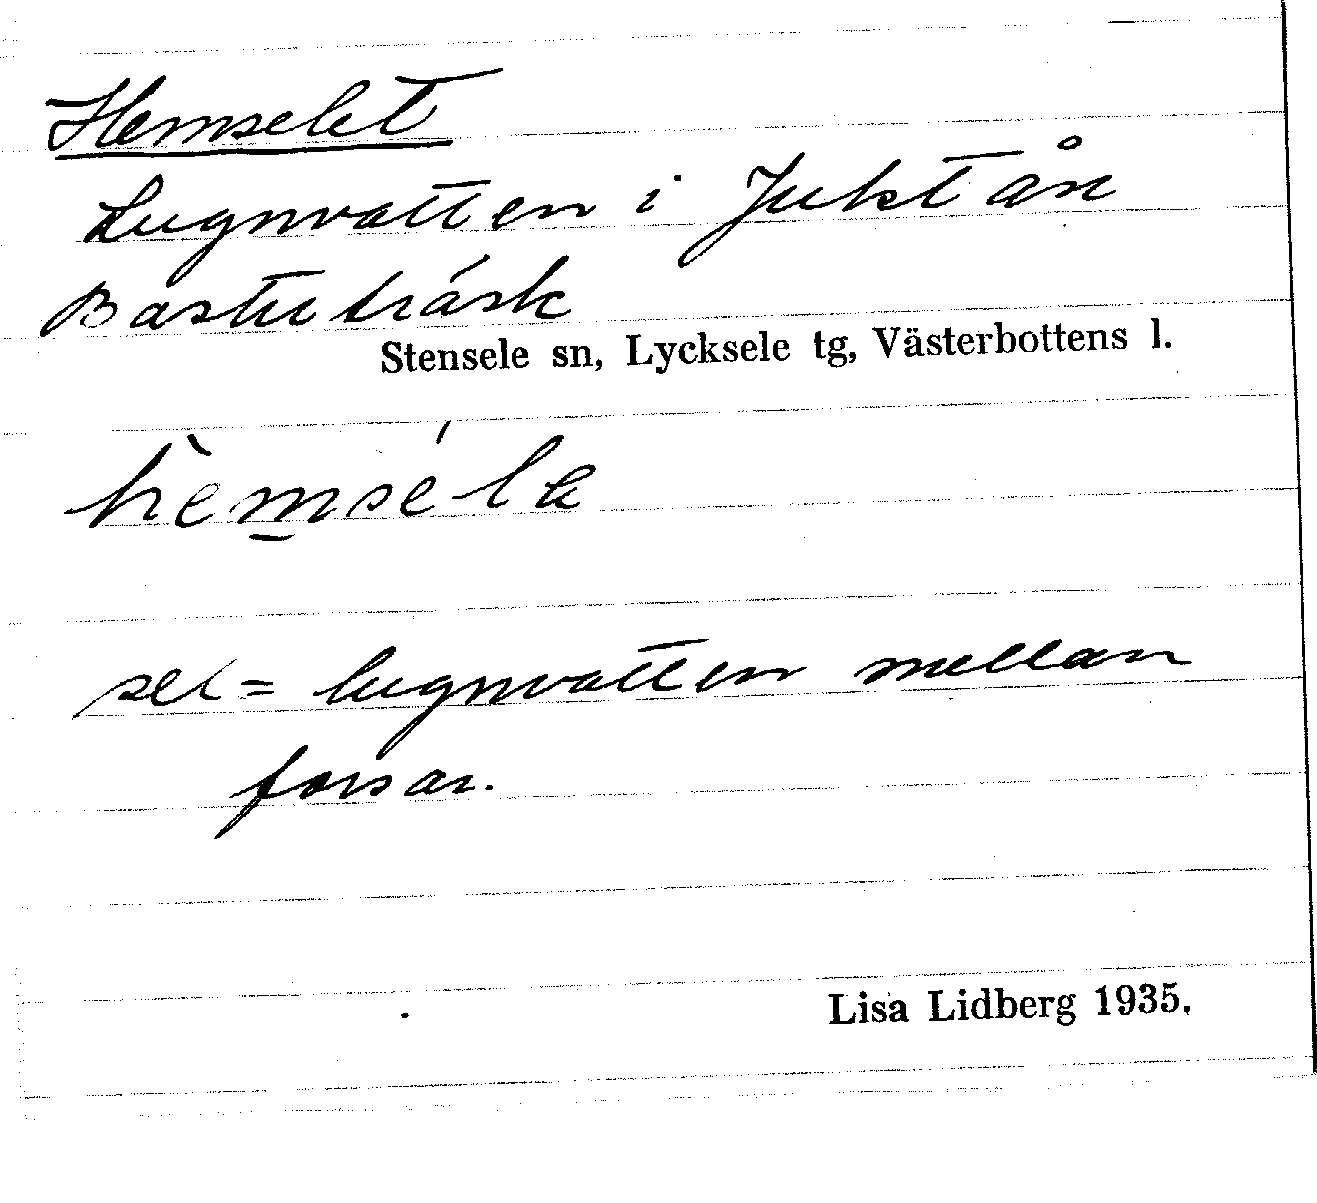 Hemselet
Lugnvatten i Juktån
Bastuträsk
Stensele sn, Lycksele tg, Västerbottens l.
sel = lugnvatten mellan
forsar.
Lisa Lidberg 1935.